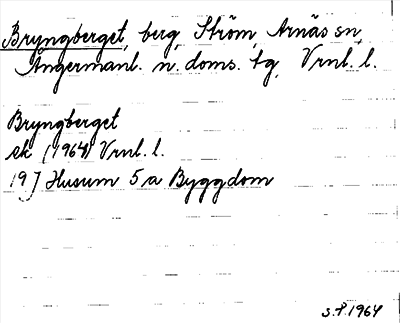 Bryngberget, berg, Ström, Arnäs sn,
Ångermanl. n. doms. tg, Vrnl. l.
Bryngberget
ek (1964) Vrnl. l.
19 J Husum 5 a Byggdom
S.F. 1964